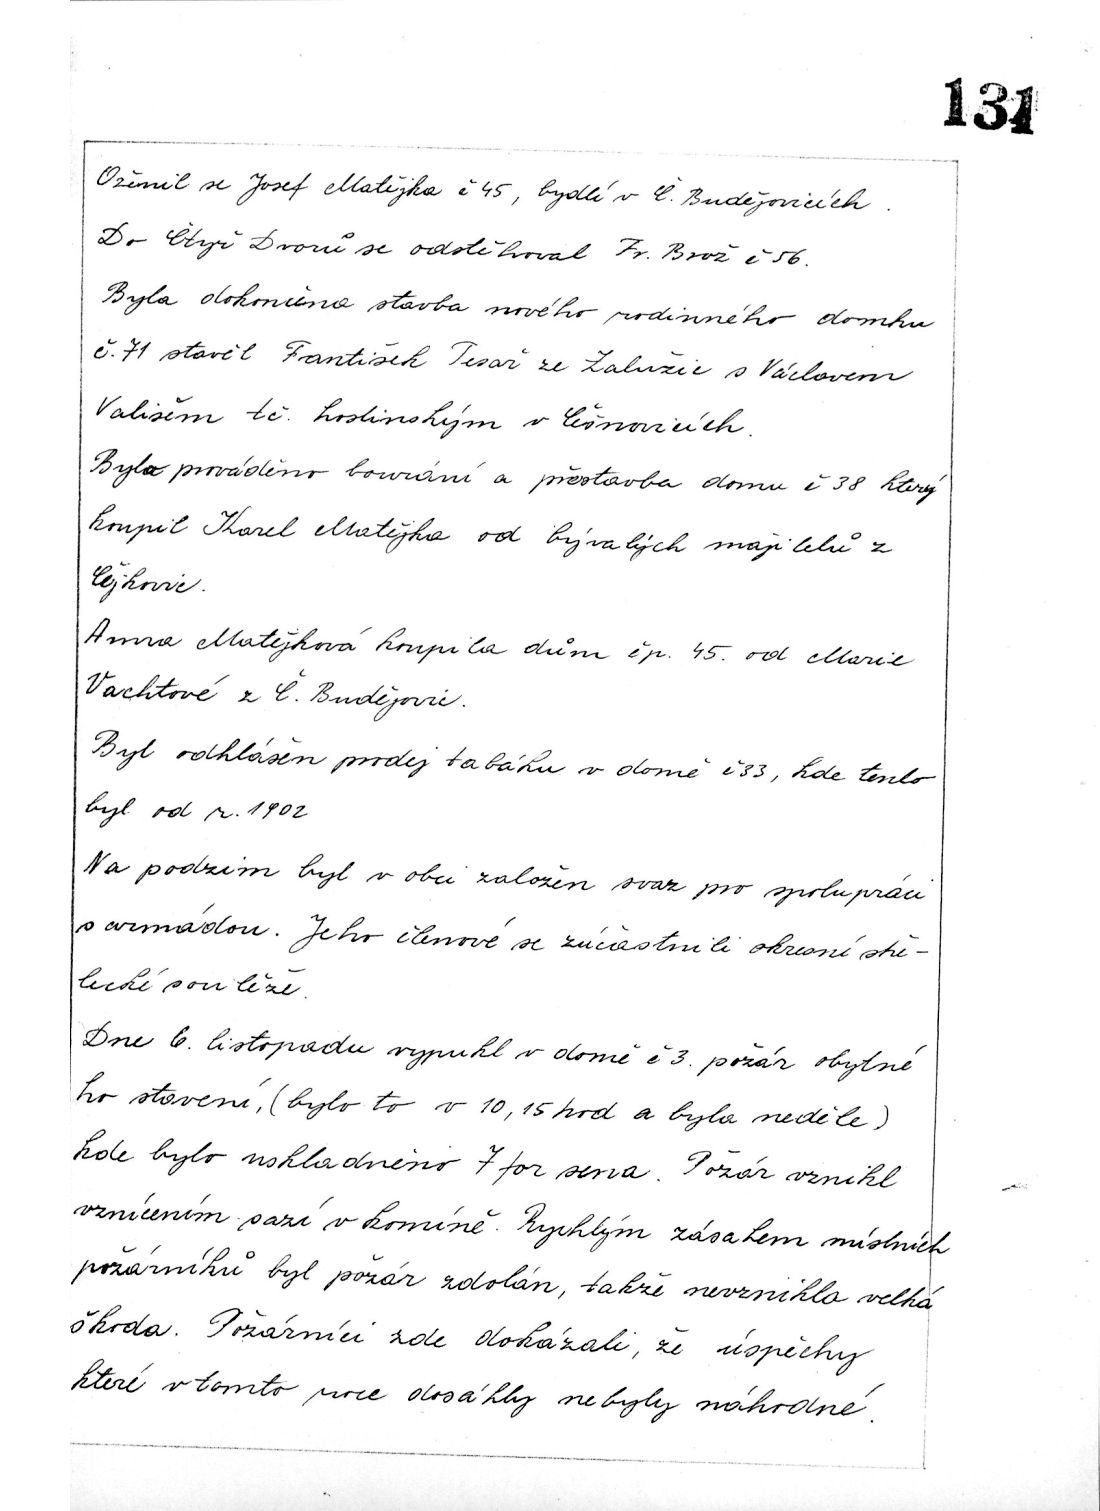 131
Oženil se Josef Matějka č 45, bydlí v Č. Budějovicích.
Do Čtyř Dvorů se odstěhoval Fr. Brož č 56.
Byla dokončena stavba nového rodinného domku
č. 71 stavěl Fantišek Tesař ze Zalužic s Václavem
Vališěm tč. hostinským v Čéšnovicích.
Byla prováděno bourání a přestavba domu č 38 který
koupil Karel Matějka od bývalých majitelů z
Čéjkovic.
Anna Matějková koupila dům čp. 45. od Marie
Vachtové z Č. Budějovic.
Byl odhlášen prodej tabáku v domě č 33, kde tento
byl od r. 1902
Na podzim byl v obci založen svaz pro spolupráci
s armádou. Jeho členové se zúčastnili okresní stře-
lecké soutěže.
Dne 6. listopadu vypukl v domě č 3. požár obytné
ho stavení, (bylo to v 10,15 hod a byla neděle)
kde bylo uskladněno 7 for sena. Požár vznikl
vznícením sazí v komíně. Rychlým zásahem místních
požárníků byl požár zdolán, takže nevznikla velká
škoda. Požárníci zde dokázali, že úspěchy
které v tomto roce dosáhly nebyly náhodné.